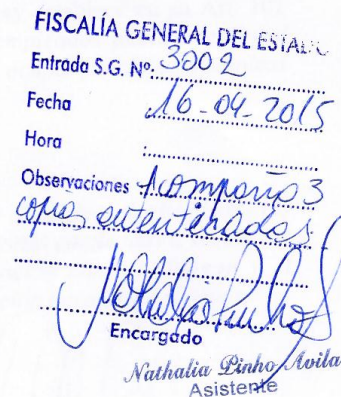 FISCALÍA GENERAL DEL ESTADO
Entrada S.G. Nº: 3002
Fecha 16-04-2015
Hora
Observaciones Acompaña 3
copias autenticadas
Encargado
Nathalia Pinho Avila
Asistente